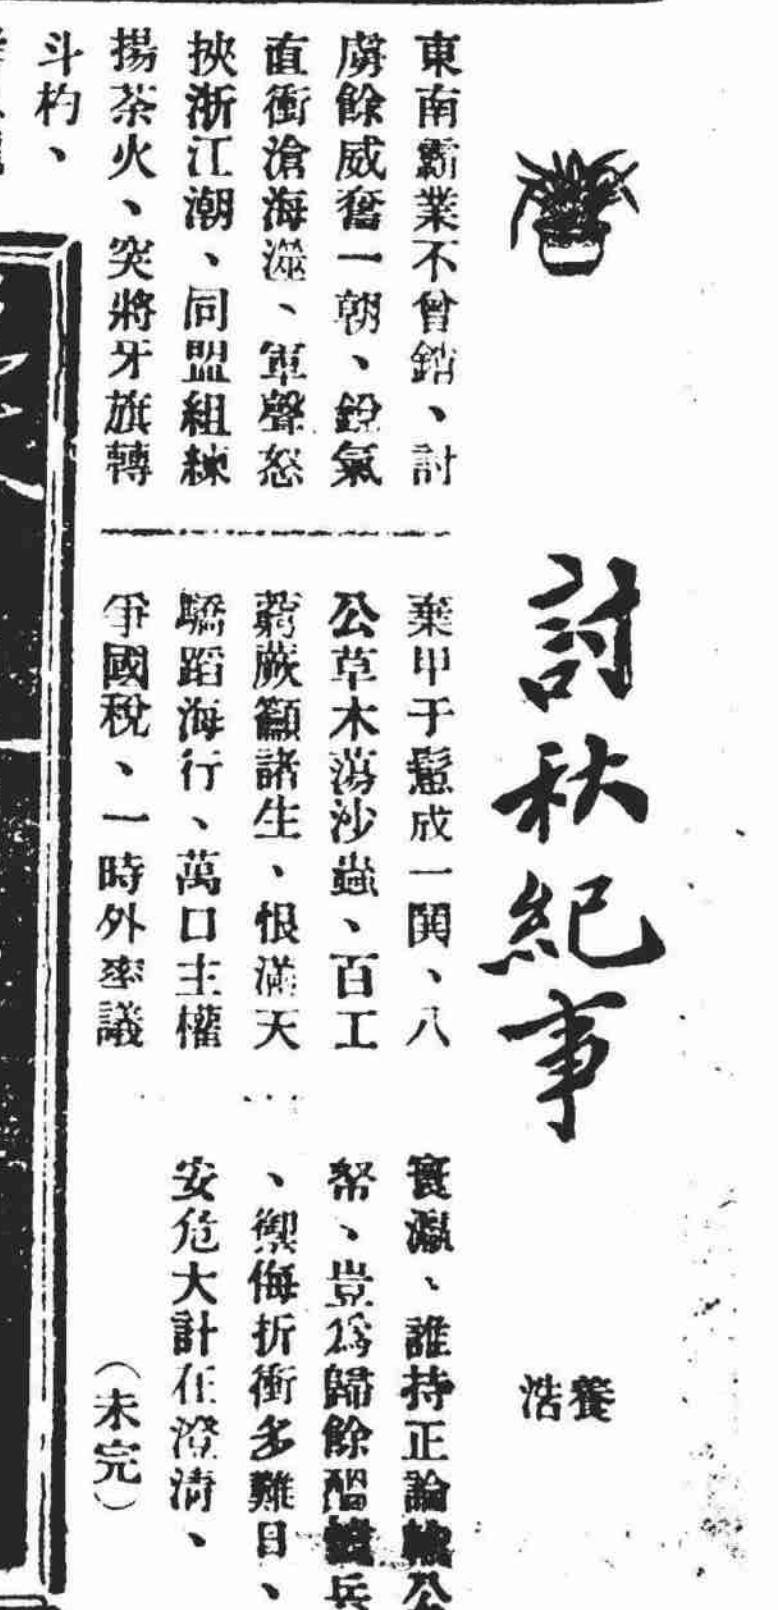 討秋紀事
養浩
東南霸業不曾銷、討
虜餘威奮一朝、銳氣
直衝滄海澨、軍聲怒
挾浙江潮、同盟組練
揚荼火、突將牙旗轉
斗杓、
棄甲于成一鬨、八
公草木蕩沙蟲、百工
蕨籲諸生、恨滿天
驕蹈海行、萬口主權
爭國稅、一時外率議
寰瀛、誰持正論公
帑、豈爲歸餘醞兵
、禦侮折衝多難日、
安危大計在澄清、
（未完）